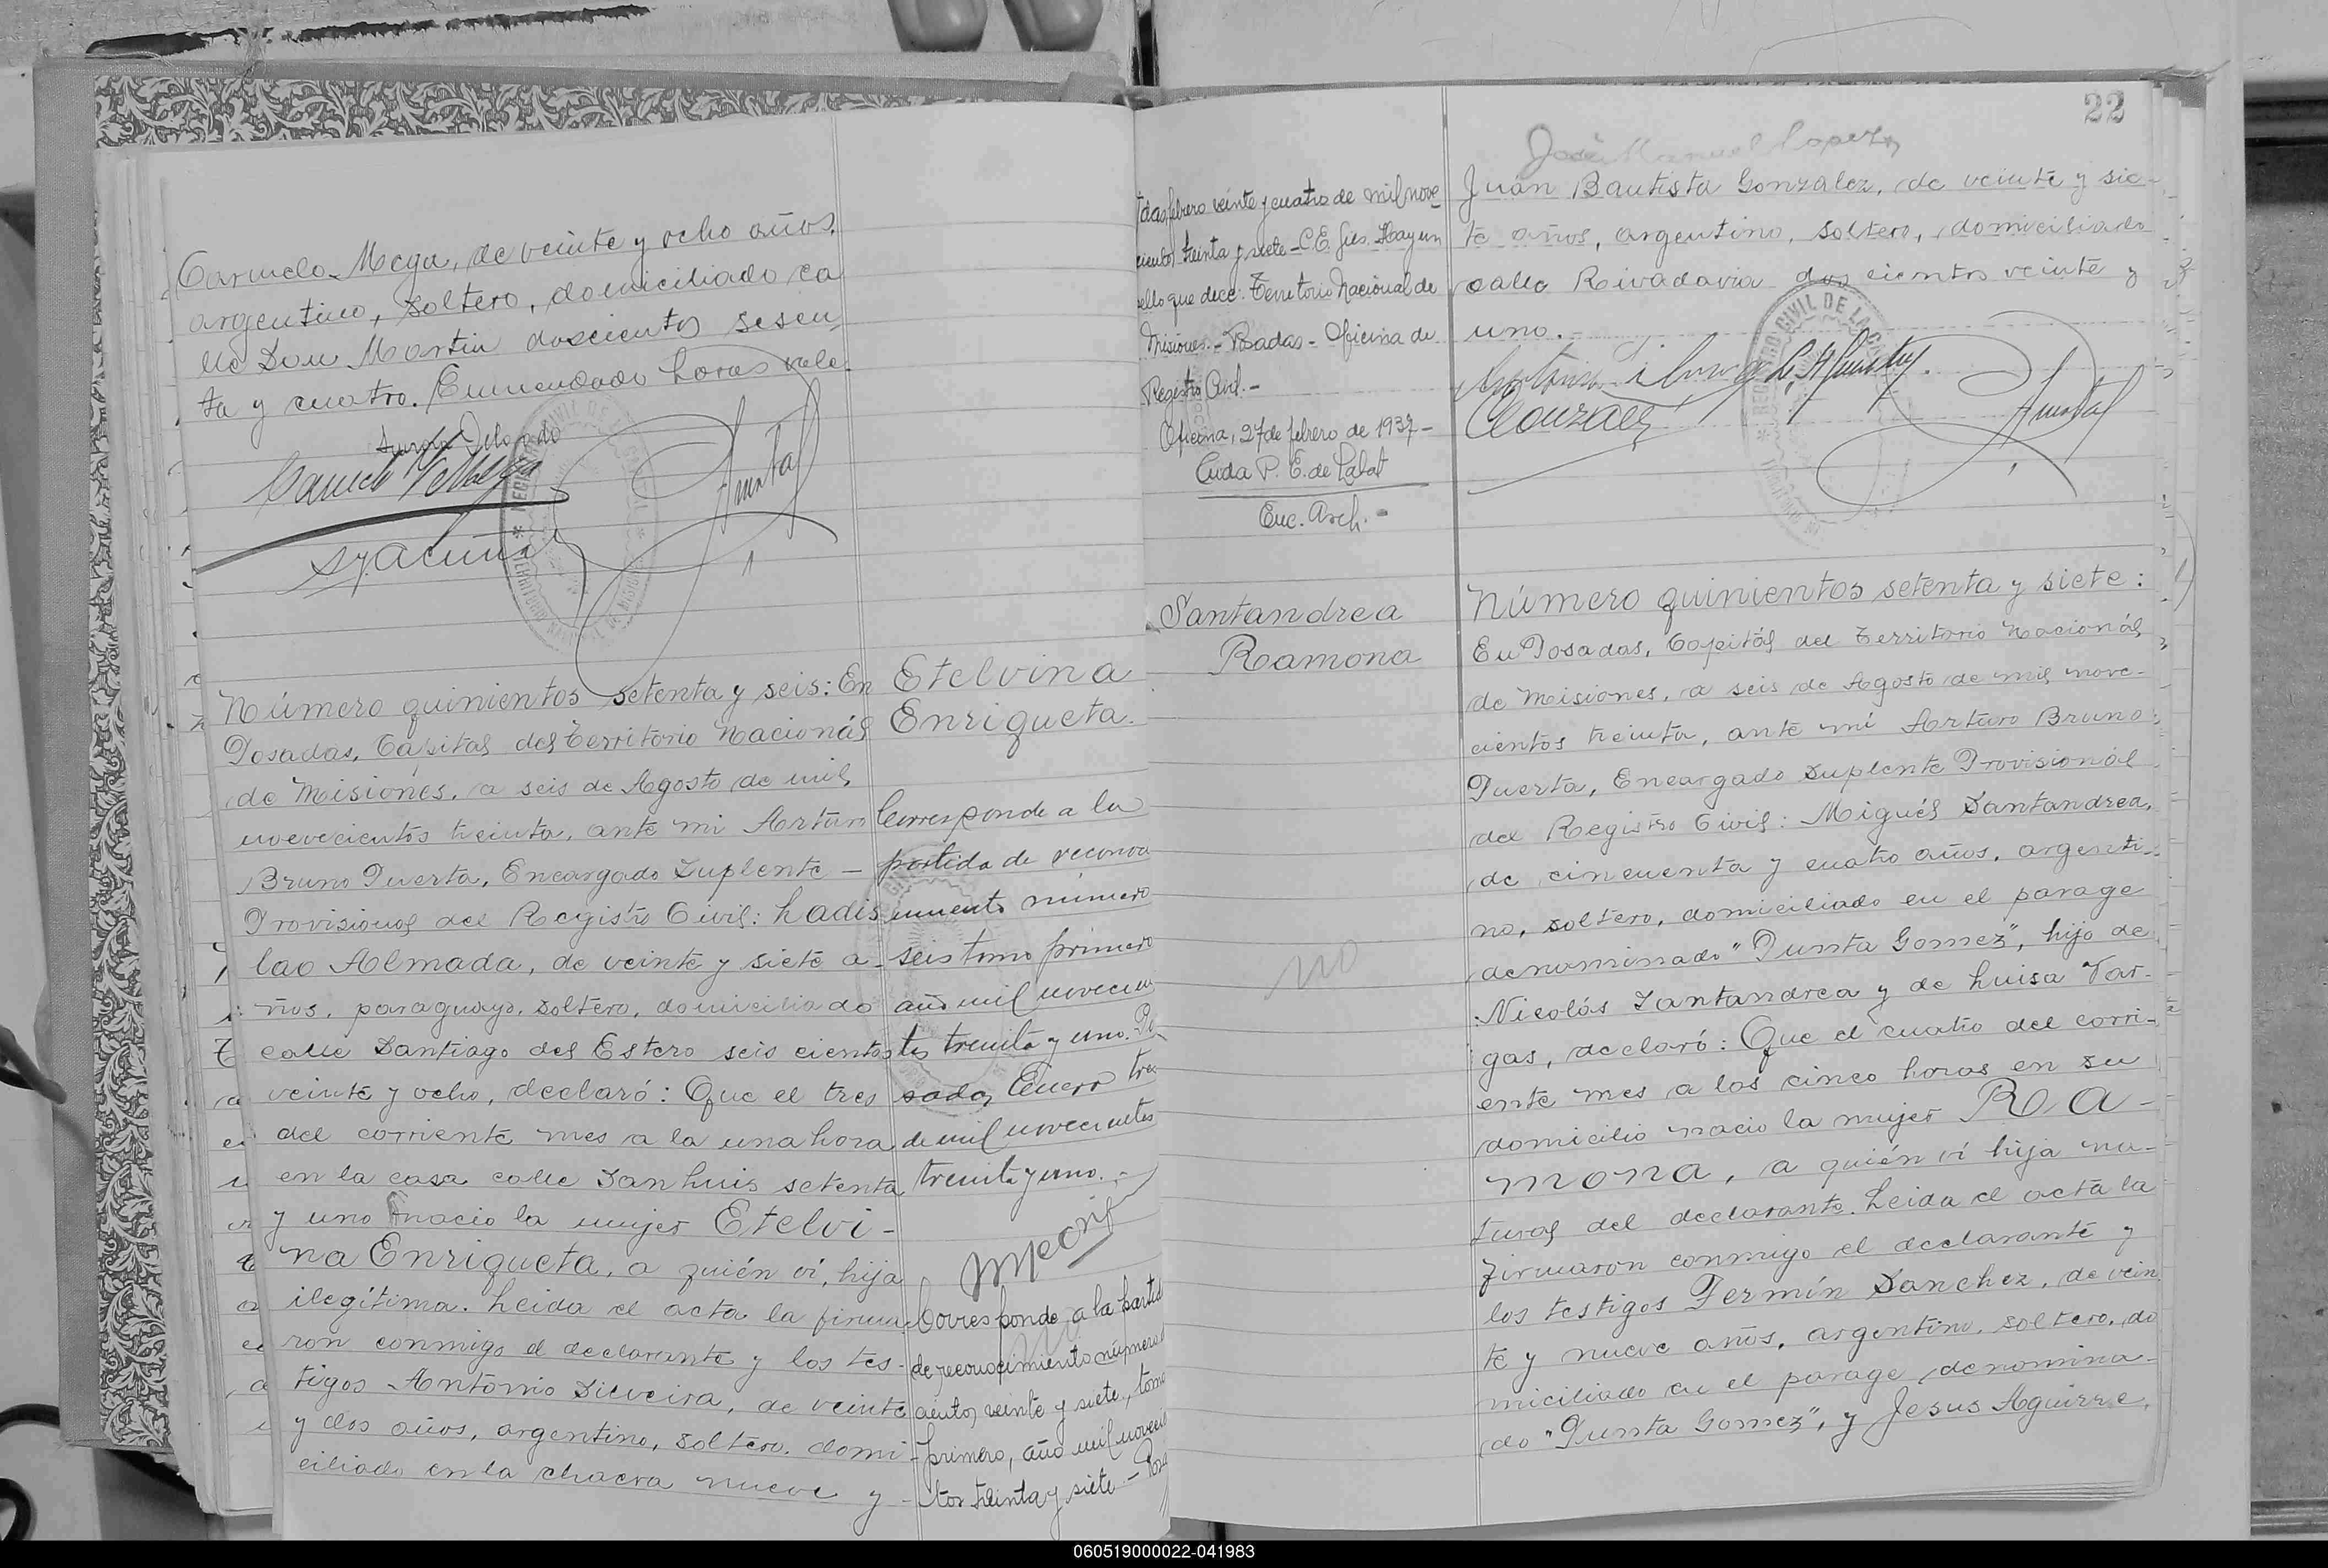 Carmelo Mega, de veinte y ocho años,
argentino, soltero, domiciliado ca
lle Don Martin doscientos sesen
ta y cuatro. Enmendado horas vale.
Número quinientos setenta y seis: En
Posadas, Capital del Territorio Nacionál
de Misiones, a seis de Agosto de mil
novecientos treinta, ante mi Arturo
Bruno Puerta, Encargado Suplente —
Provisional del Registro Civil: Ladis
lao Almada, de veinte y siete a-
ños, paraguayo, soltero, domiciliado
calle Santiago del Estero seis cientos
veinte y ocho, declaró: Que el tres
del corriente mes a la una hora
en la casa calle San Luis setenta
y uno nacio la mujer Etelvi-
na Enriqueta, a quién vi, hija
ilegítima. Leida el acta la firma
ron conmigo el declarante y los tes-
tigos Antonio Silveira, de veinte
y dos años, argentino, soltero, domi-
ciliado en la chacra nueve y
Etelvina
Enriqueta.
Corresponde a la
partida de reconoci
miento número
seis tomo primero
año mil novecien
tos treinta y uno. Po
sadas Enero tres
de mil novecientos
treinta y uno.-
Corresponde a la partid
de reconocimiento número
cientos veinte y siete, tomo
primero, año mil novecie
tos treinta y siete - Posa
22
das, febrero veinte y cuatro de mil nove
cientos treinta y siete - C.E. Hay un
sello que dice: Territorio Nacional de
Misiones - Posadas - Oficina de
Registro Civil.-
Oficina, 27 de febrero de 1937-
Enc. Arch.-
José Manuel Lopez
Juan Bautista Gonzalez, de veinte y sie-
te años, argentino, soltero, domiciliado
calle Rivadavia dos cientos veinte y
uno.
Gonzalez
Santandrea
Ramona
no
Número quinientos setenta y siete:
En Posadas, Capitál del Territorio Nacionál
de Misiones, a seis de Agosto de mil nove-
cientos treinta, ante mí Arturo Bruno
Puerta, Encargado Suplente Provisionál
del Registro Civil: Miguél Santandrea,
de cincuenta y cuatro años, argenti-
no, soltero, domiciliado en el parage
denominado "Punta Gomez", hijo de
Nicolás Santandrea y de Luisa Var-
gas, declaró: Que el cuatro del corri-
ente mes a las cinco horas en su
domicilio nacio la mujer Ra-
mona, a quién ví hija na-
tural del declarante. Leida el acta la
firmaron conmigo el declarante y
los testigos Fermín Sanchez, de vein
te y nueve años, argentino, soltero, do
miciliado en el parage denomina-
do "Punta Gomez", y Jesus Aguirre,
060519000022-041983